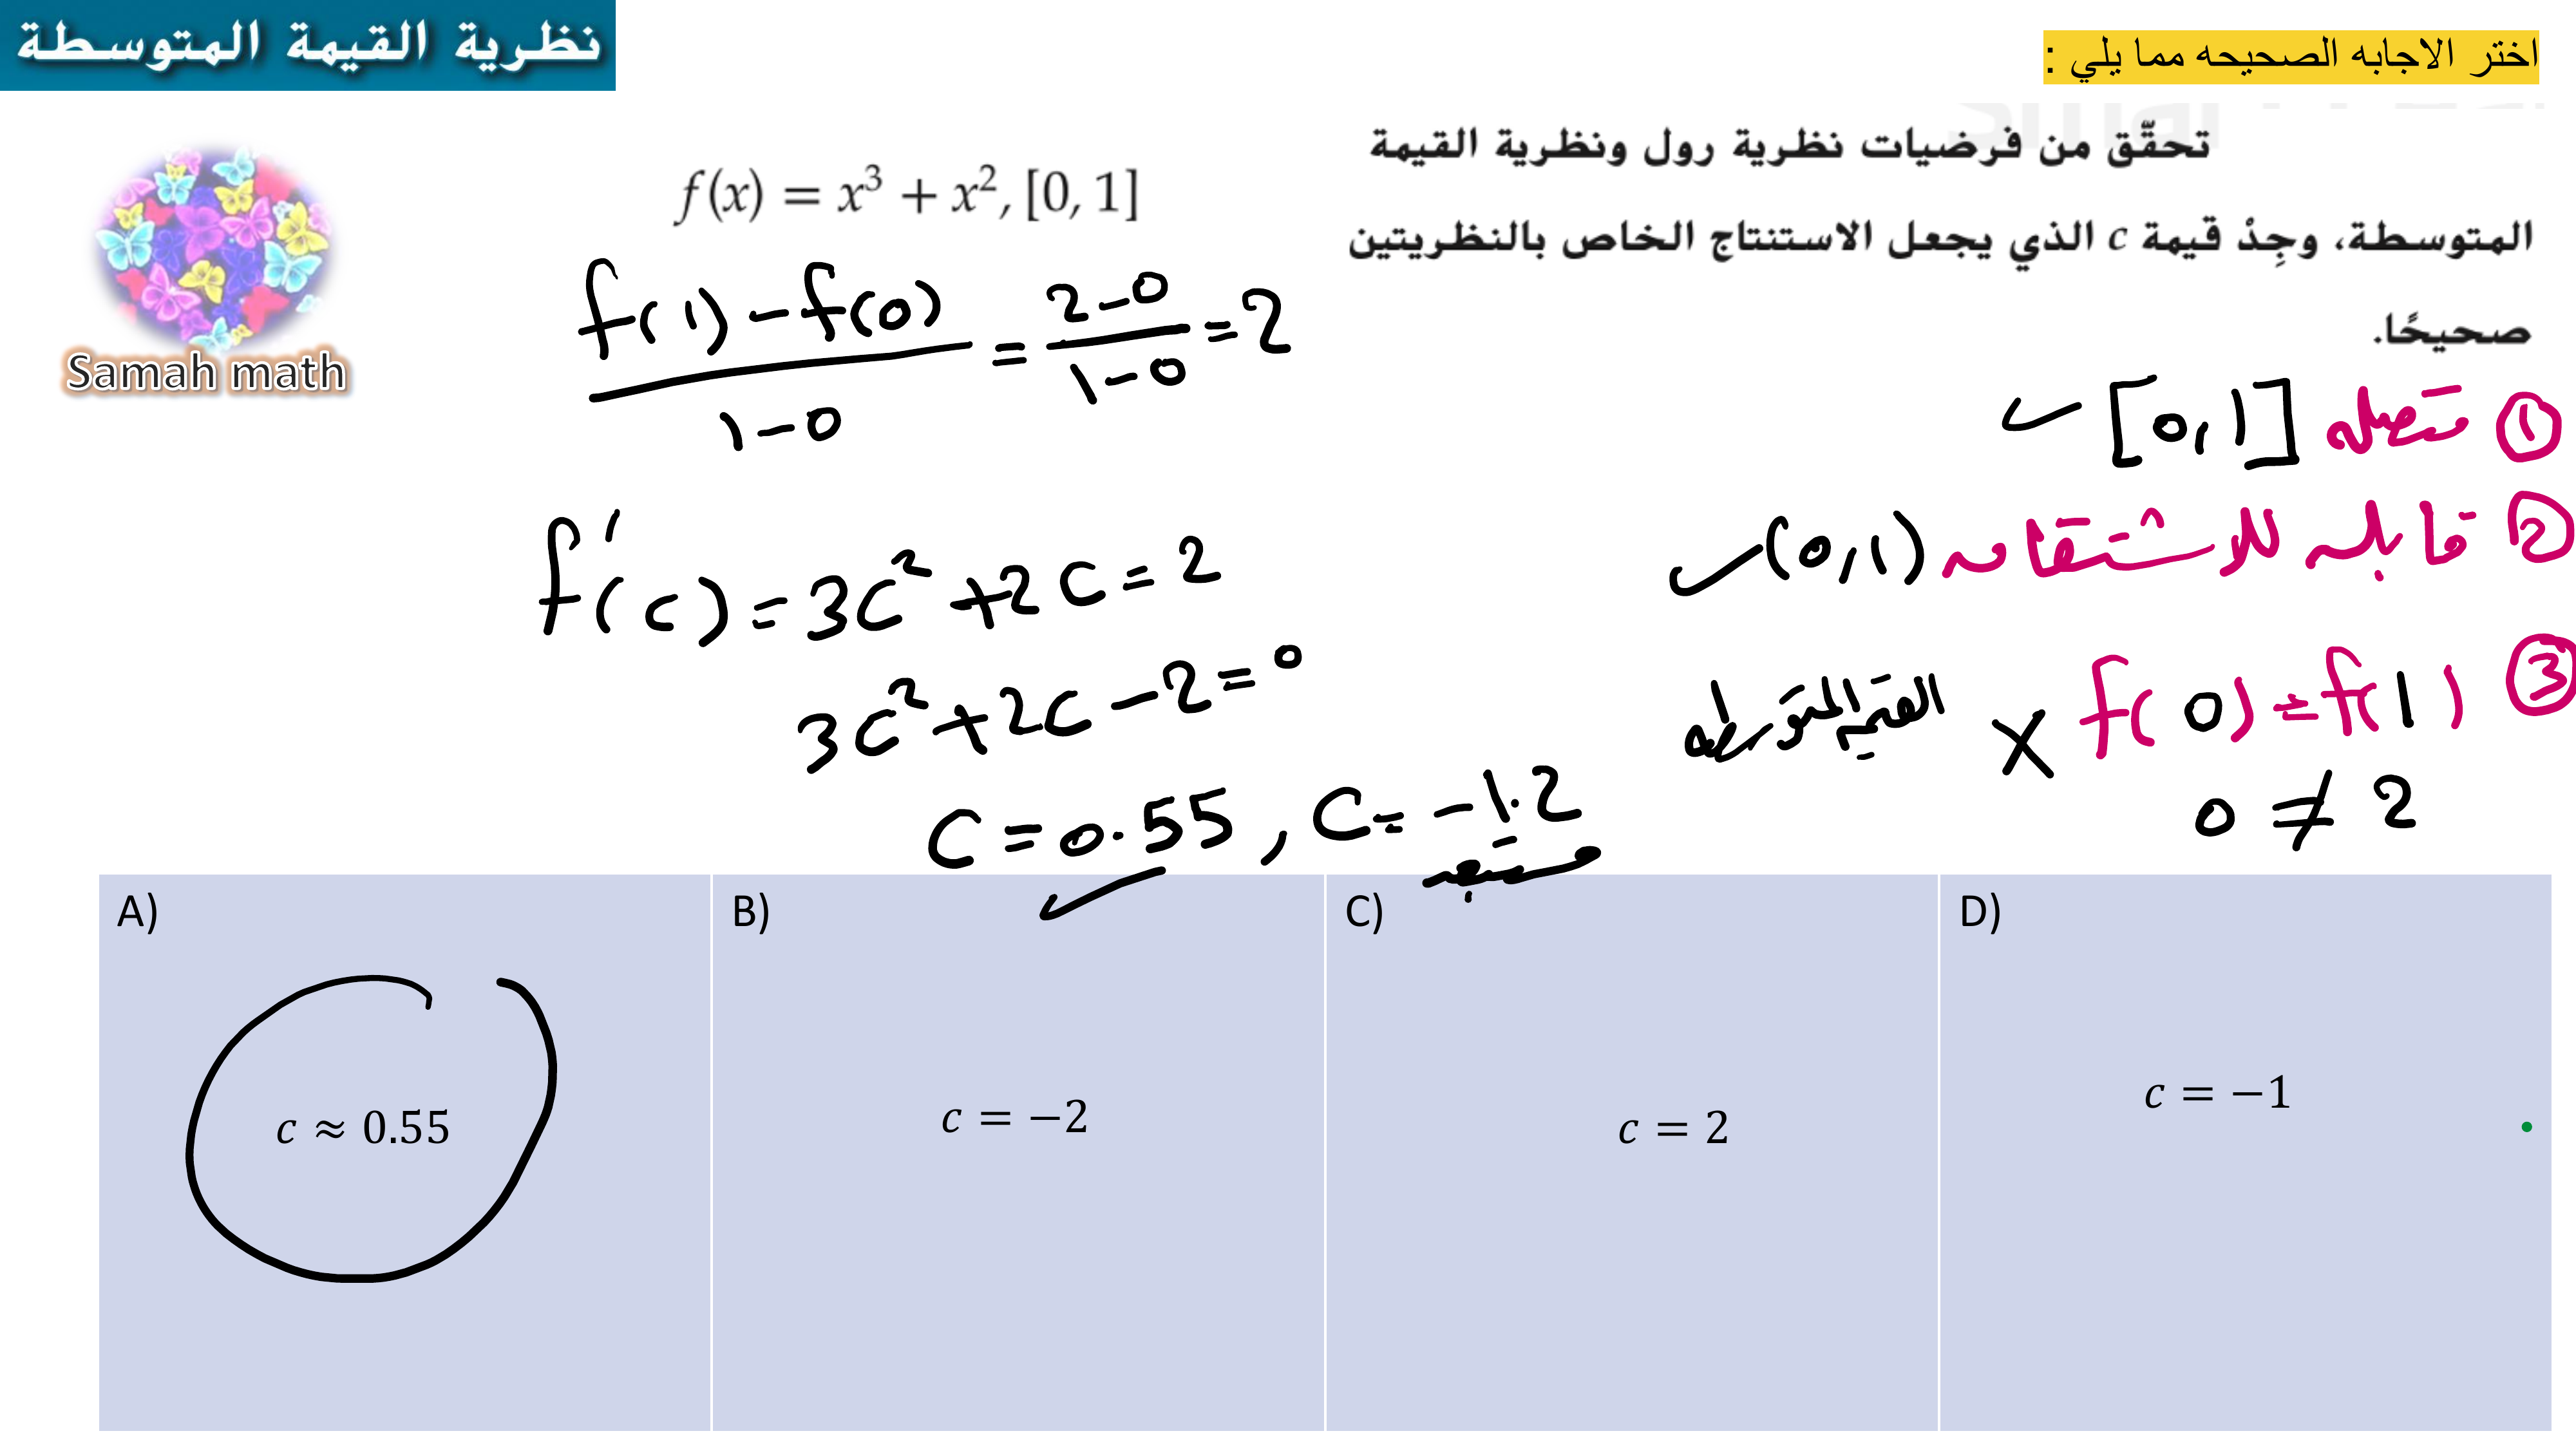 نظرية القيمة المتوسطة
اختر الاجابه الصحيحه مما يلي :
تحقّق من فرضيات نظرية رول ونظرية القيمة
المتوسطة، وجِدْ قيمة c الذي يجعل الاستنتاج الخاص بالنظريتين
صحيحًا.
f(x) = x³ + x², [0, 1]
Samah math
(f(1) − f(0)) / (1 − 0) = (2 − 0) / (1 − 0) = 2
f′(c) = 3c² + 2c = 2
3c² + 2c − 2 = 0
c = 0.55 , c = −1.2
① متصله [0,1] ✓
② قابله للاشتقاق (0,1) ✓
③ f(0) = f(1) ✗ القيمه المتوسطه
0 ≠ 2
A)
c ≈ 0.55
B)
c = −2
C)
c = 2
D)
c = −1